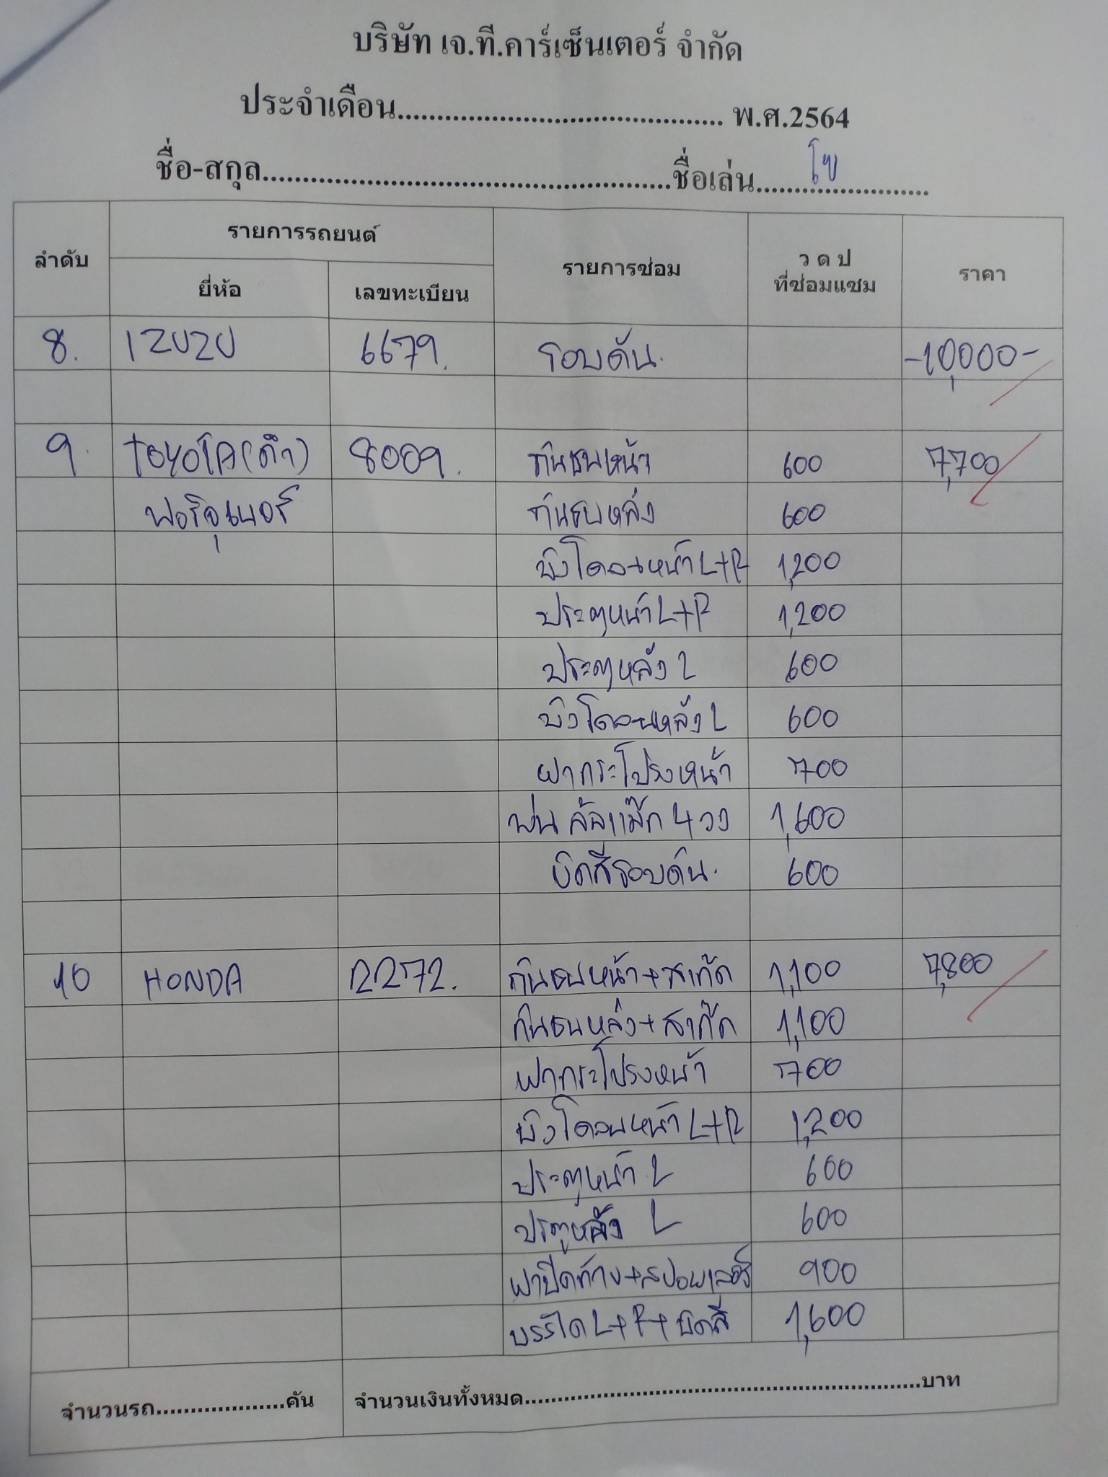 บริษัท เจ.ที.คาร์เซ็นเตอร์ จำกัด
ประจำเดือน......................................... พ.ศ.2564
ชื่อ-สกุล....................................................ชื่อเล่น......................
ลำดับ รายการรถยนต์ รายการซ่อม ว ด ป ที่ซ่อมแซม ราคา
ยี่ห้อ เลขทะเบียน
8. IZUZU 6679. รอบคัน. -10,000-
9. TOYOTA(ดำ) 8009. กันชนหน้า 600 7,700
ฟอร์จูนเนอร์ กันชนหลัง 600
บังโคลนหน้า L+R 1,200
ประตูหน้า L+R 1,200
ประตูหลัง L 600
บังโคลนหลัง L 600
ฝากระโปรงหน้า 700
พ่นล้อแม็ก 4 วง 1,600
ขัดสีรอบคัน. 600
10 HONDA 2272. กันชนหน้า+สเกิ๊ต 1,100 7,800
กันชนหลัง+สเกิ๊ต 1,100
ฝากระโปรงหน้า 700
บังโคลนหน้า L+R 1,200
ประตูหน้า L 600
ประตูหลัง L 600
ฝาปิดท้าย+สปอยเลอร์ 900
บรรได L+R+ขัดสี 1,600
จำนวนรถ...................คัน จำนวนเงินทั้งหมด..................................................บาท